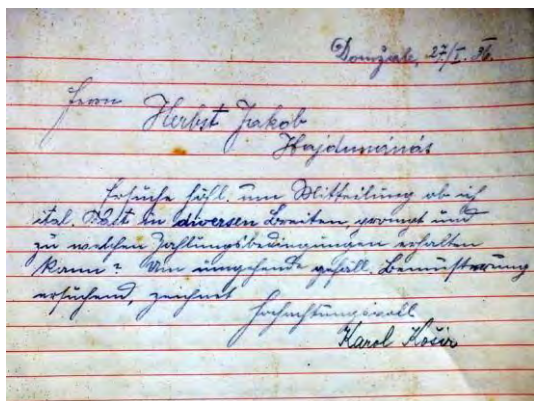 Domžale, 27/I. 36.
Herrn
Herbst Jakob
Hajdunánás
Ersuche höfl. um Mitteilung ob ich
ital. Bast in diversen Breiten, prompt und
zu welchen Zahlungsbedingungen erhalten
kann? Um umgehende gefäll. Bemusterung
ersuchend, zeichnet
Hochachtungsvoll
Karol Košir